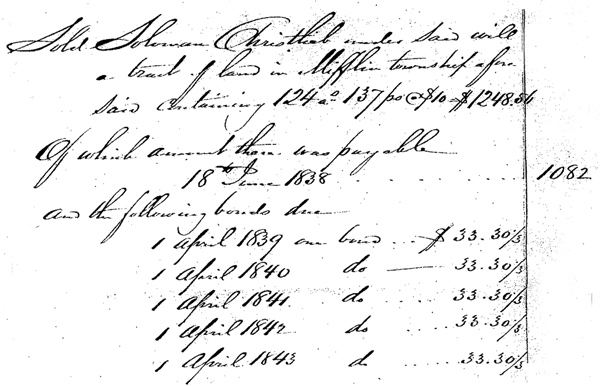 Sold Soloman Christlieb under said will
a tract of land in Mifflin township afore
said containing 124 as 137 ps @ $10 = $1248.56
Of which amount there was payable
18th June 1838 . . . . . . . . . . 1082
and the following bonds due
1 April 1839 one bond . . . $ 33.30 1/3
1 April 1840 do —— 33.30 1/3
1 April 1841 do . . . . . 33.30 1/3
1 April 1842 do . . . . . 33.30 1/3
1 April 1843 do . . . . . 33.30 1/3